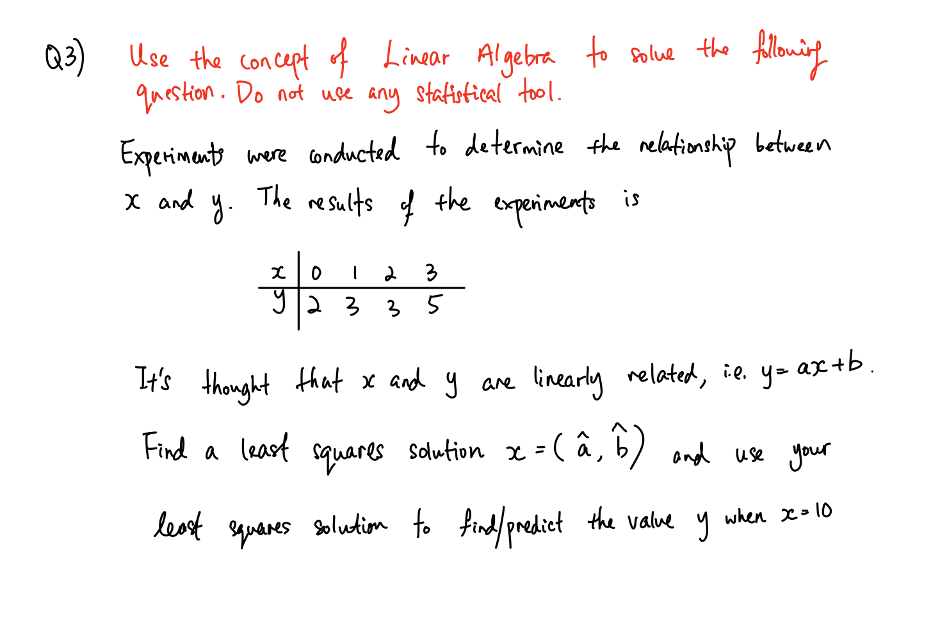 Q3) Use the concept of Linear Algebra to solve the following
question. Do not use any statistical tool.
Experiments were conducted to determine the relationship between
x and y. The results of the experiments is
x | 0 1 2 3
y | 2 3 3 5
It's thought that x and y are linearly related, i.e. y = ax + b.
Find a least squares solution x = (â, b̂) and use your
least squares solution to find/predict the value y when x = 10